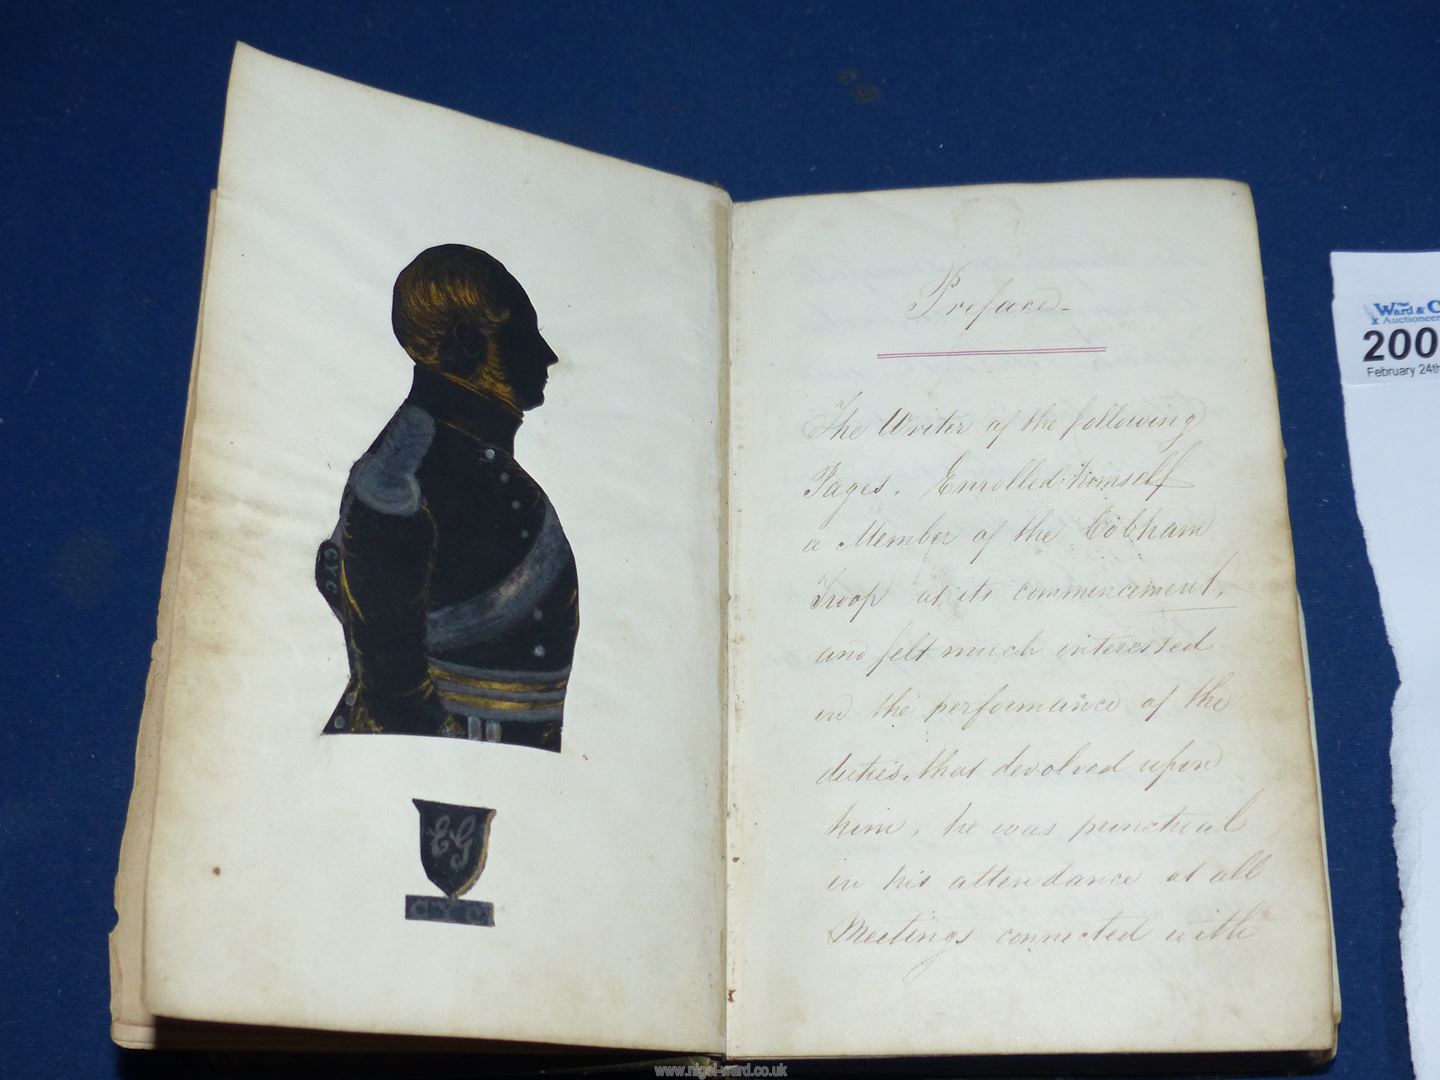 CYC
EG
CYC
Preface.
The Writer of the following
Pages. Enrolled himself
a Member of the Cobham
Troop at its commencement,
and felt much interested
in the performance of the
duties that devolved upon
him, he was punctual
in his attendance at all
Meetings connected with
The
Ward & C
Auctioneer
200
February 24th
www.nigel-ward.co.uk